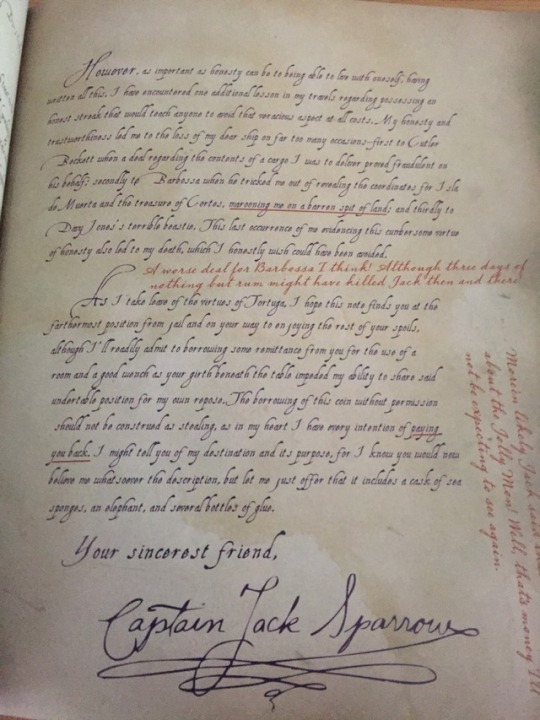 However, as important as honesty can be to being able to live with oneself, having
written all this, I have encountered one additional lesson in my travels regarding possessing an
honest streak that would teach anyone to avoid that veracious aspect at all costs. My honesty and
trustworthiness led me to the loss of my dear ship on far too many occasions—first to Cutler
Beckett when a deal regarding the contents of a cargo I was to deliver proved fraudulent on
his behalf; secondly to Barbossa when he tricked me out of revealing the coordinates for Isla
de Muerta and the treasure of Cortes, marooning me on a barren spit of land; and thirdly to
Davy Jones's terrible beastie. This last occurrence of me evidencing this cumbersome virtue
of honesty also led to my death, which I honestly wish could have been avoided.
A worse deal for Barbossa I think! Although three days of
nothing but rum might have killed Jack then and there!
As I take leave of the virtues of Tortuga, I hope this note finds you at the
farthermost position from jail and on your way to enjoying the rest of your spoils,
although I'll readily admit to borrowing some remittance from you for the use of a
room and a good wench as your girth beneath the table impeded my ability to share said
undertable position for my own repose. The borrowing of this coin without permission
should not be construed as stealing, as in my heart I have every intention of paying
you back. I might tell you of my destination and its purpose, for I know you would now
believe me whatsoever the description, but let me just offer that it includes a cask of sea
sponges, an elephant, and several bottles of glue.
Your sincerest friend,
Captain Jack Sparrow
likely Jack said
about the Jolly Mon! Well, that's money I'll
not be expecting to see again.